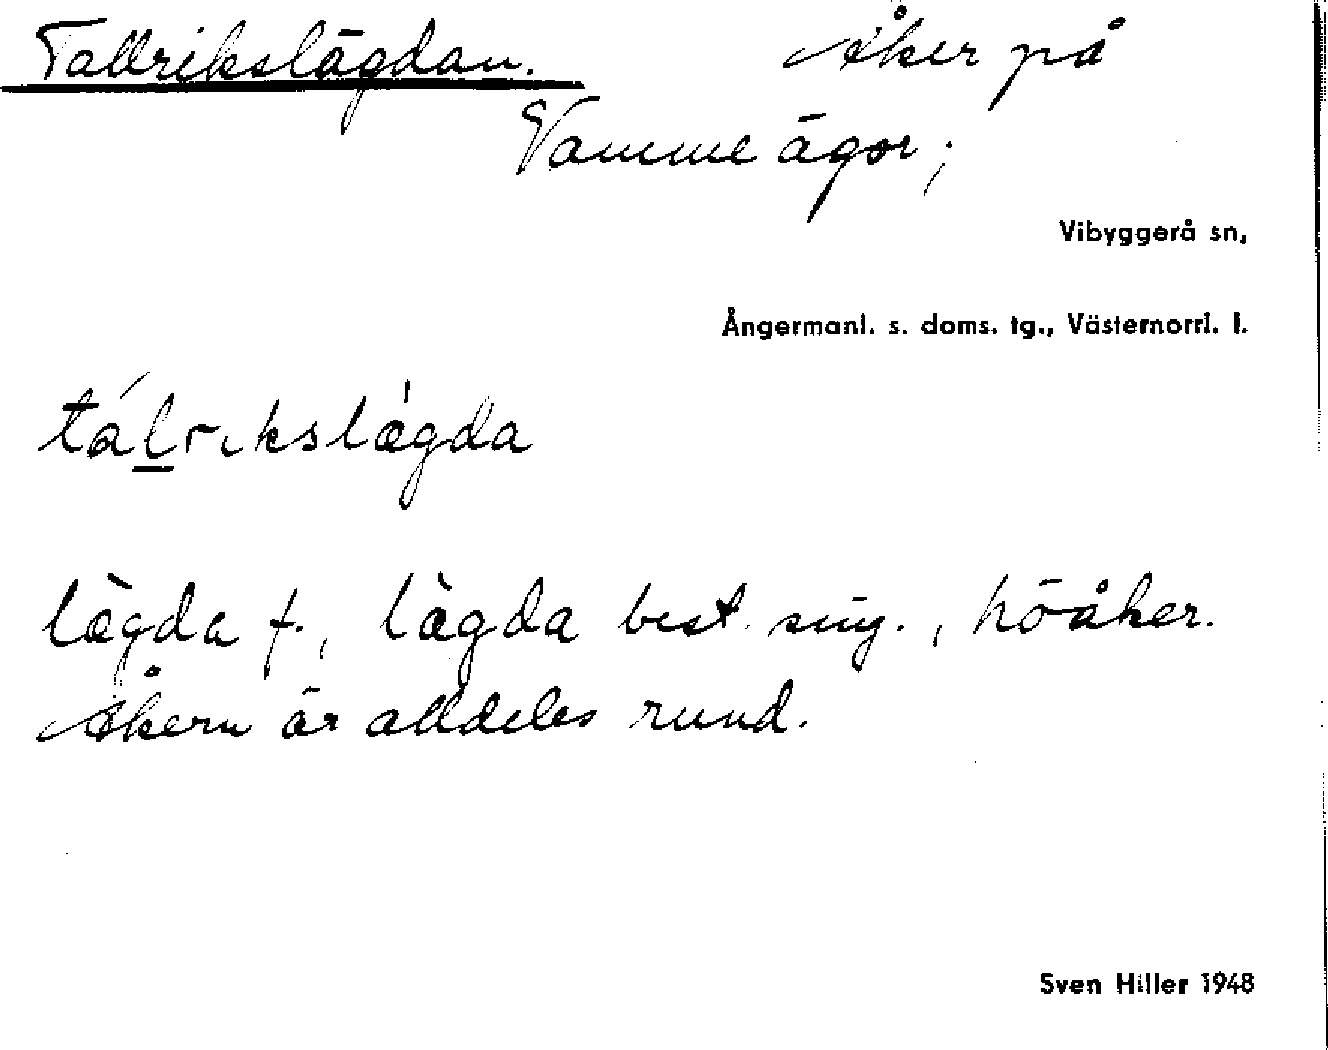 Tallrikslägdan. Åker på
Vamme ägor;
Vibyggerå sn,
Ångermanl. s. doms. tg., Västernorrl. l.
tálrikslæ̀gda
læ̀gda f., læ̀gda best. sing., höåker.
Åkern är alldeles rund.
Sven Hiller 1948